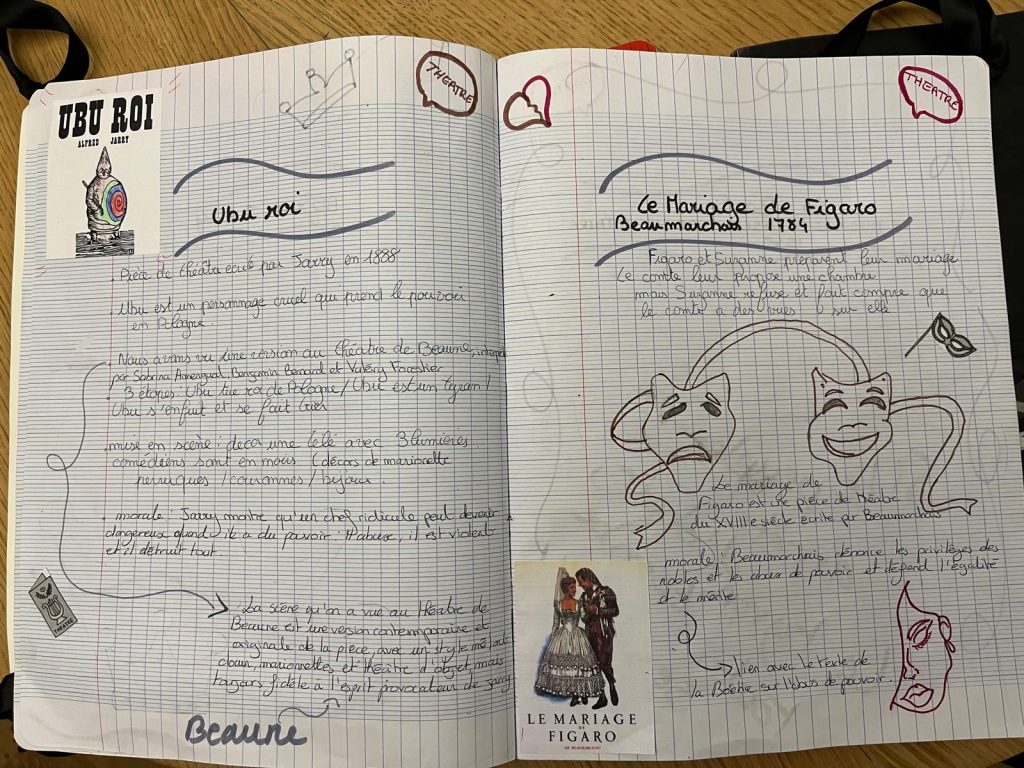 UBU ROI
ALFRED JARRY
THEATRE
Ubu roi
Pièce de théâtre écrit par Jarry en 1888
Ubu est un personnage cruel qui prend le pouvoir
en Pologne.
Nous avons vu une version au théâtre de Beaune,
par Sabrina Amengual, Benjamin Bernard et Valéry Forestier
3 étapes: Ubu tue roi de Pologne / Ubu est un tyran /
Ubu s'enfuit et se fait
mise en scène: decor une télé avec 3 lumières.
comédiens sont en (décors de marionette
perruques / couronnes / bijoux.
morale: Jarry montre qu'un chef ridicule peut devenir
dangereux quand il a du pouvoir: Il abuse, il est violent
et il détruit tout.
THEATRE
La scène qu'on a vue au théâtre de
Beaune est une version contemporaine et
originale de la pièce, avec un style mêlant
clown, marionnettes et théâtre d'objet, mais
toujours fidèle à l'esprit provocateur de Jarry
Beaune
THEATRE
Le Mariage de Figaro
Beaumarchais 1784
Figaro et Suzanne préparent leur mariage
Le comte leur propose une chambre
mais Suzanne refuse et fait compre que
le comte à des vues sur elle
Le mariage de
Figaro est une pièce de théatre
du XVIII e siècle écrite par Beaumarchais
morale: Beaumarchais dénonce les privilèges des
nobles et les abus de pouvoir et défend l'égalité
et le mérite
lien avec le texte de
la Boétie sur l'abus de pouvoir.
LE MARIAGE
DE
FIGARO
DE BEAUMARCHAIS